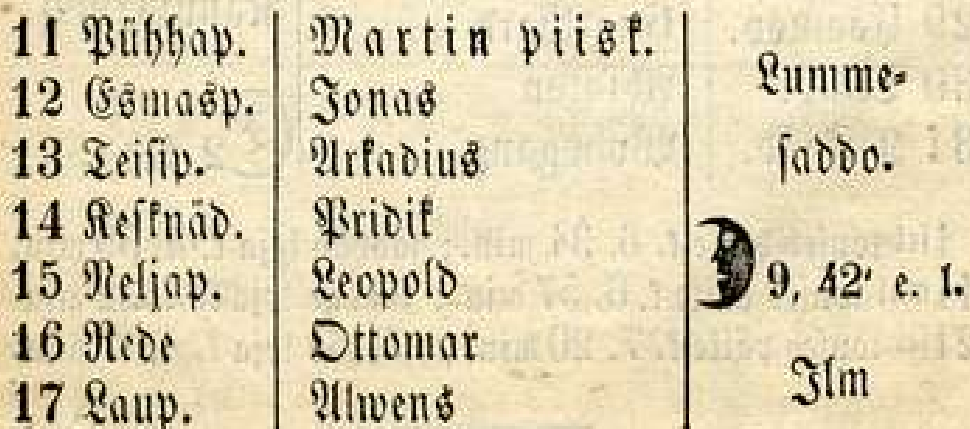 11 Pühhap. Martin piisk.
12 Esmasp. Jonas
Lumme-
13 Teisip. Arkadius
saddo.
14 Kesknäd. Pridik
15 Neljap. Leopold
9, 42' e. l.
16 Rede Ottomar
17 Laup. Alwens
Ilm